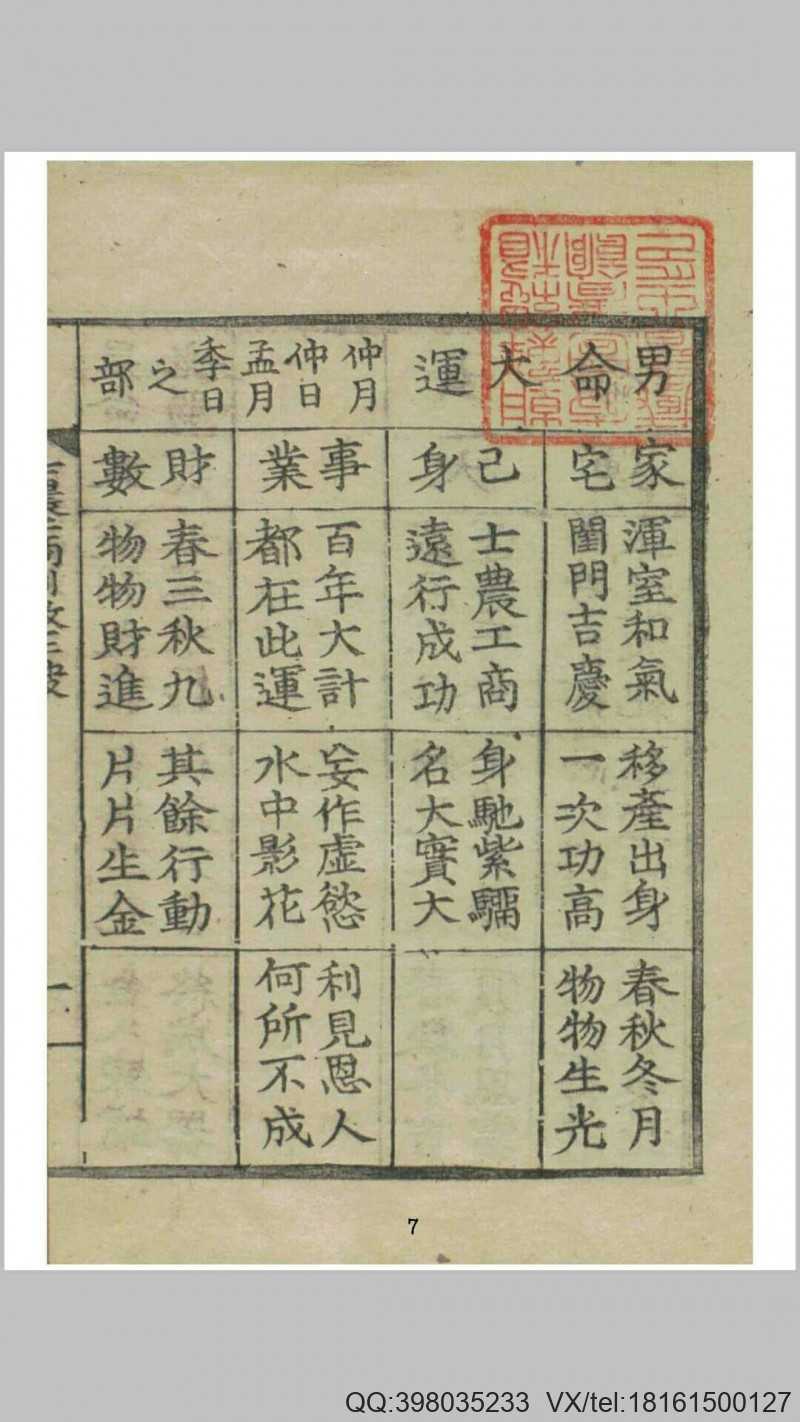 男命大運
仲月
仲日
孟月
季日
之部
家宅
渾室和氣
閨門吉慶
移產出身
一次功高
春秋冬月
物物生光
己身
士農工商
遠行成功
身馳紫騮
名大實大
事業
百年大計
都在此運
妄作虛慾
水中影花
利見恩人
何所不成
財數
春三秋九
物物財進
其餘行動
片片生金
一
7
QQ:398035233 VX/tel:18161500127